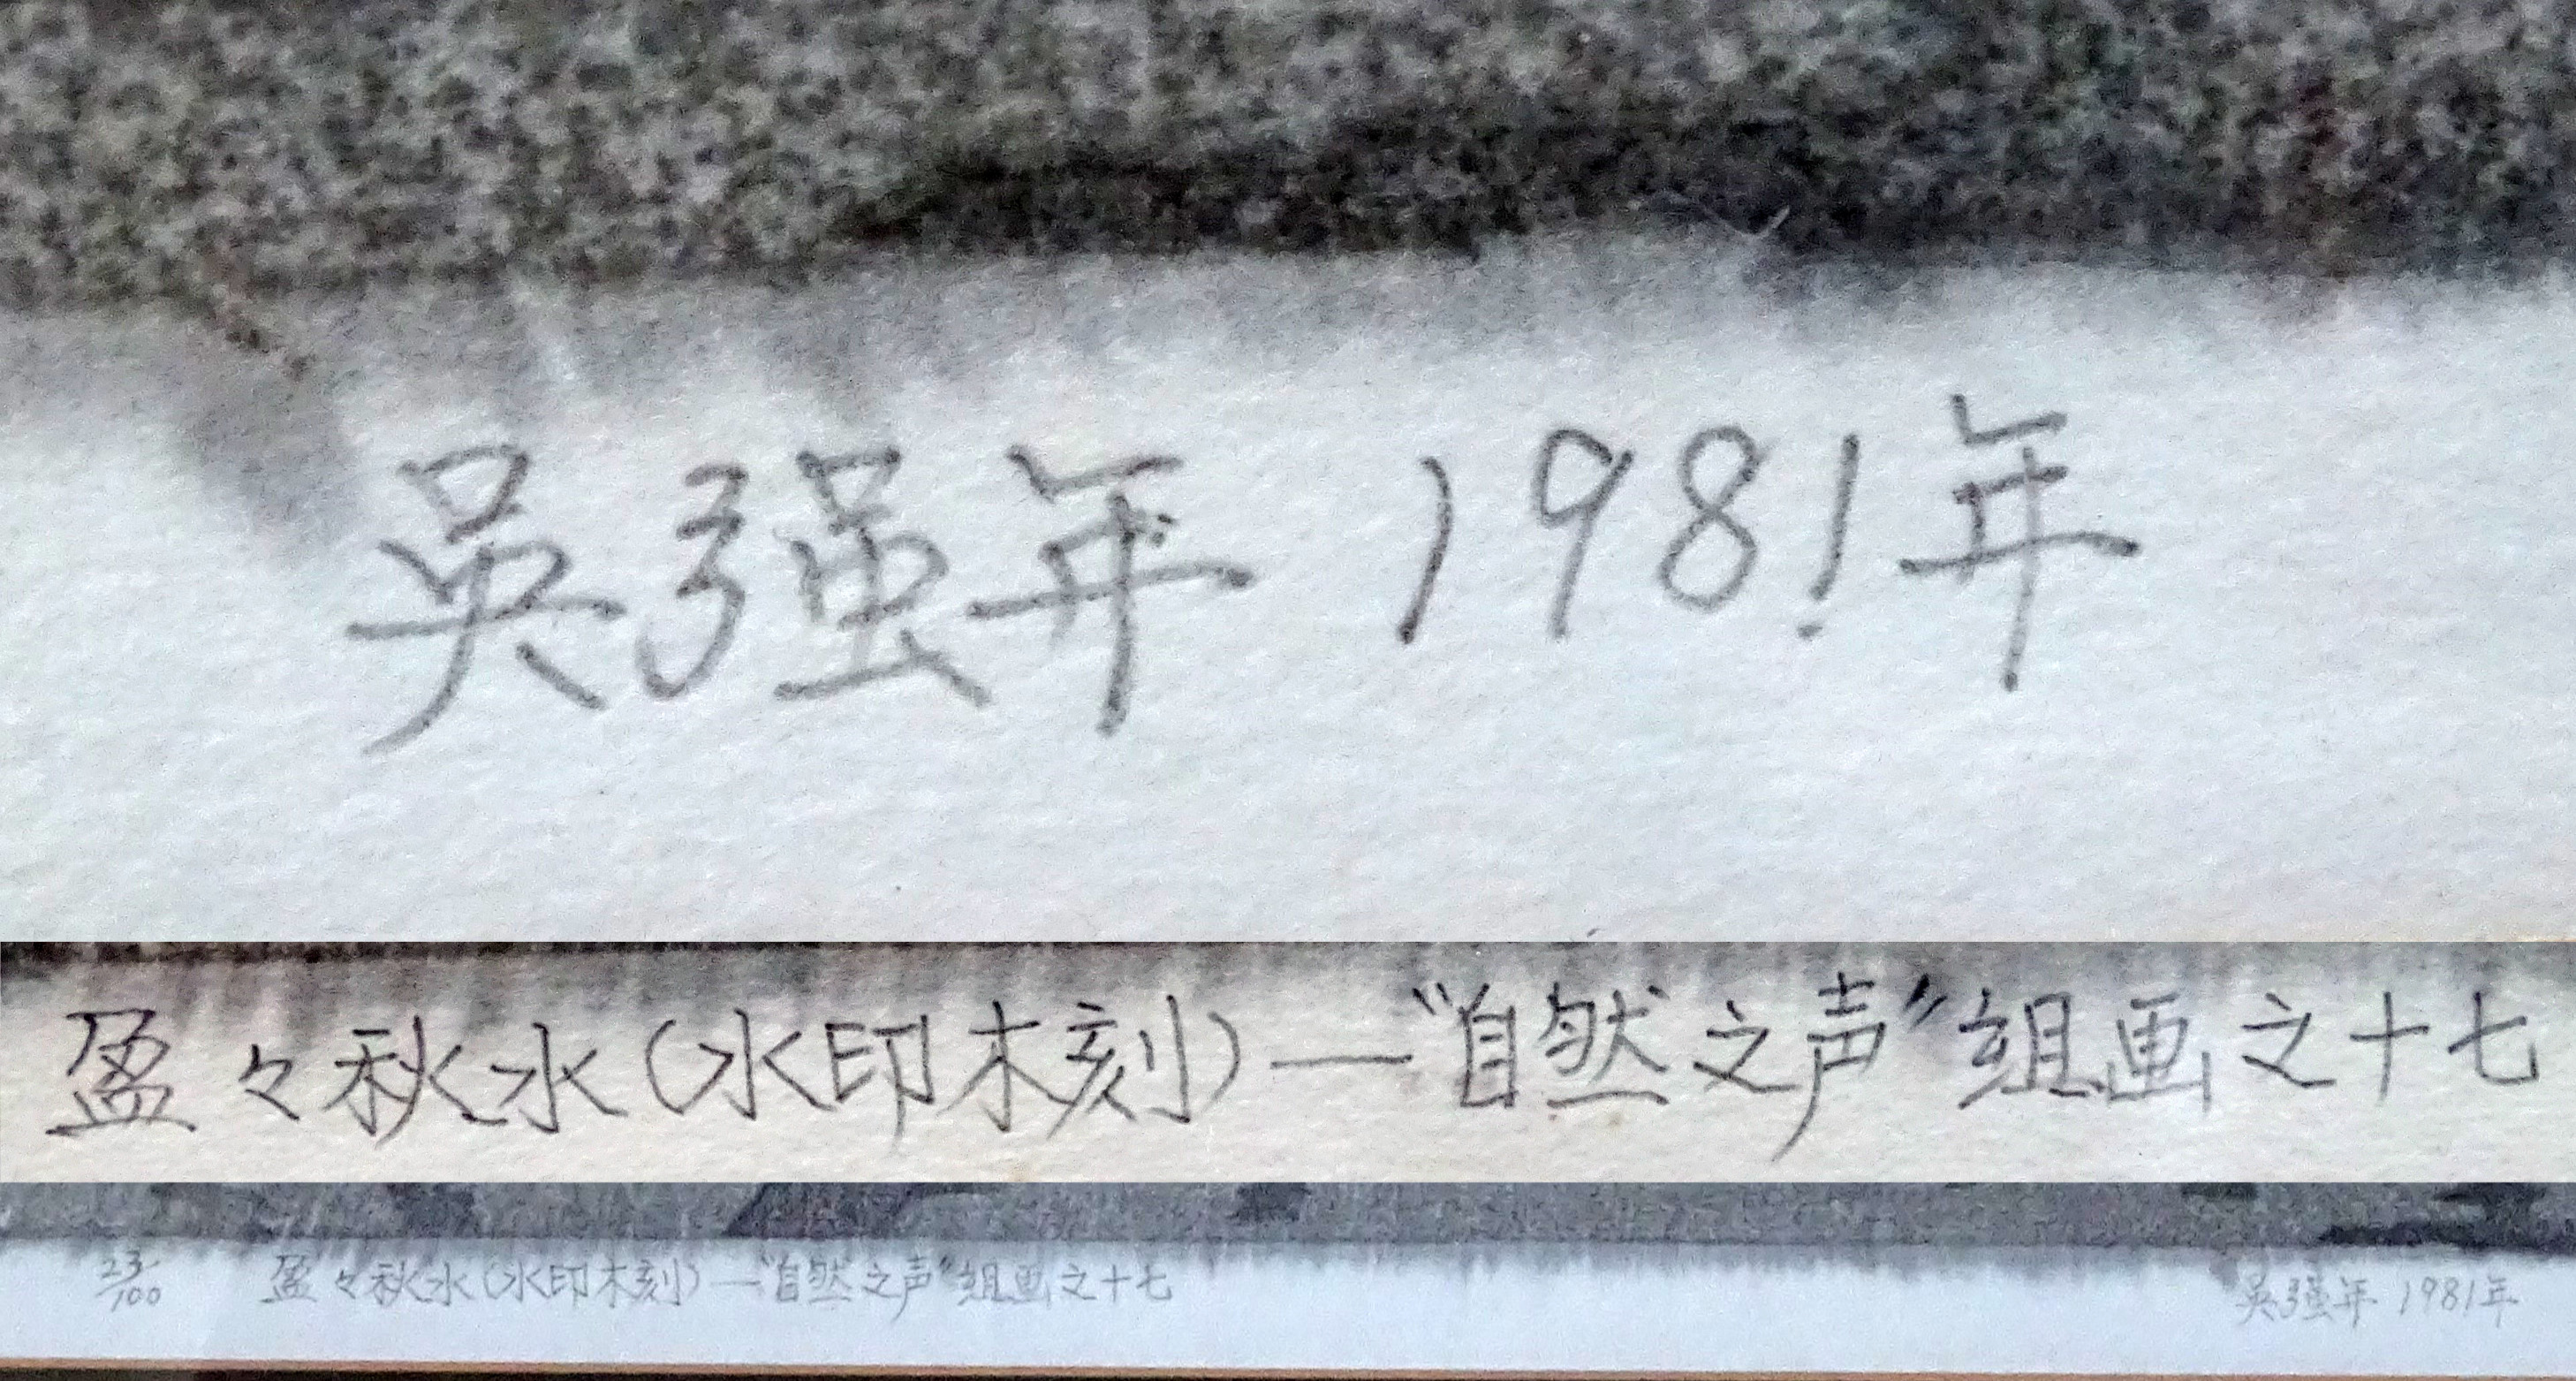 吳强年 1981年
盈々秋水(水印木刻)—“自然之声”组画之十七
23/100 盈々秋水(水印木刻)—“自然之声”组画之十七 吳强年 1981年